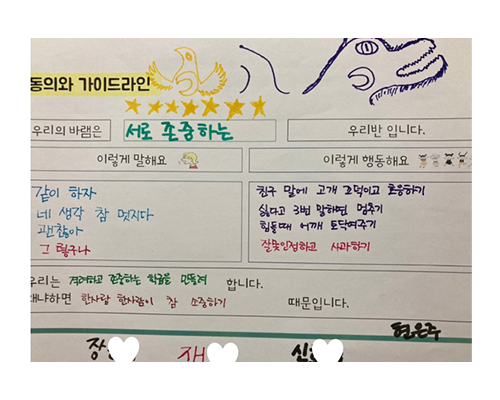 동의와 가이드라인
우리의 바램은 서로 존중하는 우리반 입니다.
이렇게 말해요 이렇게 행동해요
같이 하자
네 생각 참 멋지다
괜찮아
그렇구나
친구 말에 고개 끄덕이고 호응하기
싫다고 3번 말하면 멈추기
힘들때 어깨 토닥여주기
잘못인정하고 사과하기
우리는 격려하고 존중하는 학급을 만들려 합니다.
왜냐하면 한사람 한사람이 참 소중하기 때문입니다.
현은주
장 재 신